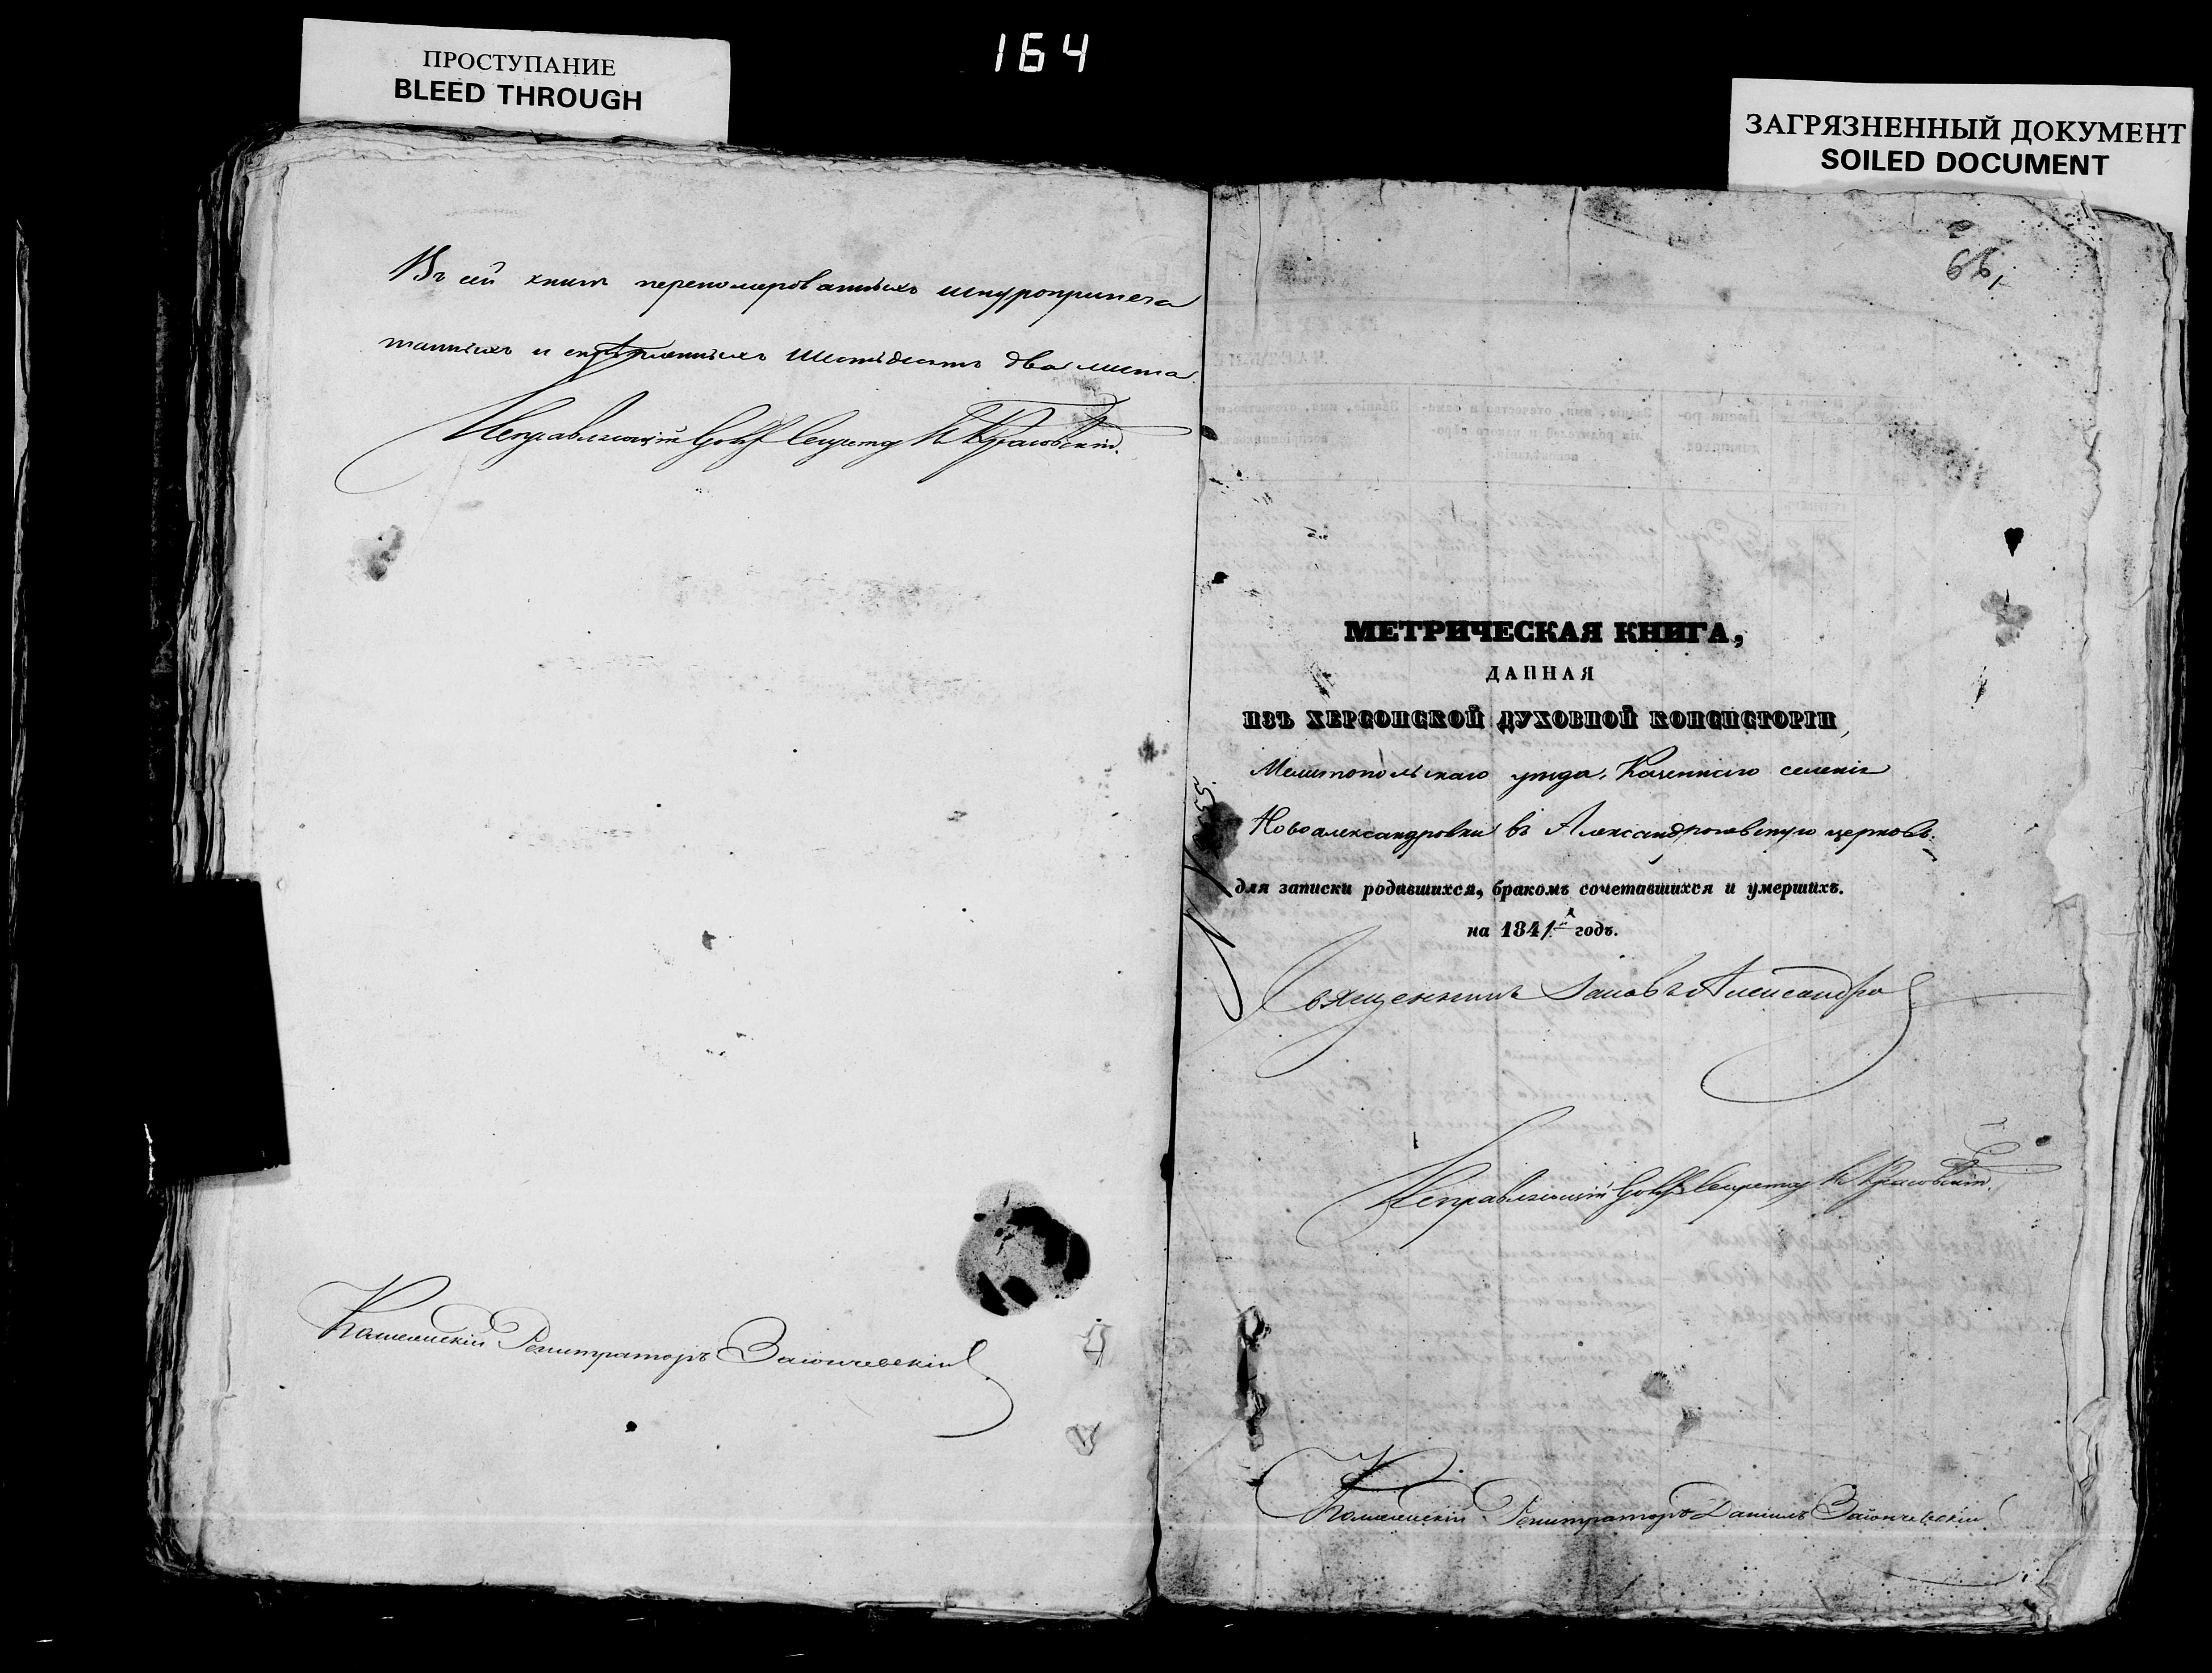 164
ПРОСТУПАНИЕ
BLEED THROUGH
ЗАГРЯЗНЕННЫЙ ДОКУМЕНТ
SOILED DOCUMENT
Въ сей книгѣ перенумерованныхъ шнуроприпеча
танныхъ и скрѣпленныхъ шестьдесятъ два листа
Исправляющій Секретаря К Красовскій.
Коллежскій Регистраторъ Заіончевскій
66
МЕТРИЧЕСКАЯ КНИГА,
ДАННАЯ
ИЗЪ ХЕРСОНСКОЙ ДУХОВНОЙ КОНСИСТОРІИ,
Мелитопольскаго уѣзда, Казеннаго селенія
Новоалександровки въ Александроневскую церковь.
для записки родившихся, бракомъ сочетавшихся и умершихъ.
на 1841й годъ.
Священникъ Іаковъ Александро
Исправляющій Секретаря К Красовскій.
Коллежскій Регистраторъ Даніилъ Заіончевскій